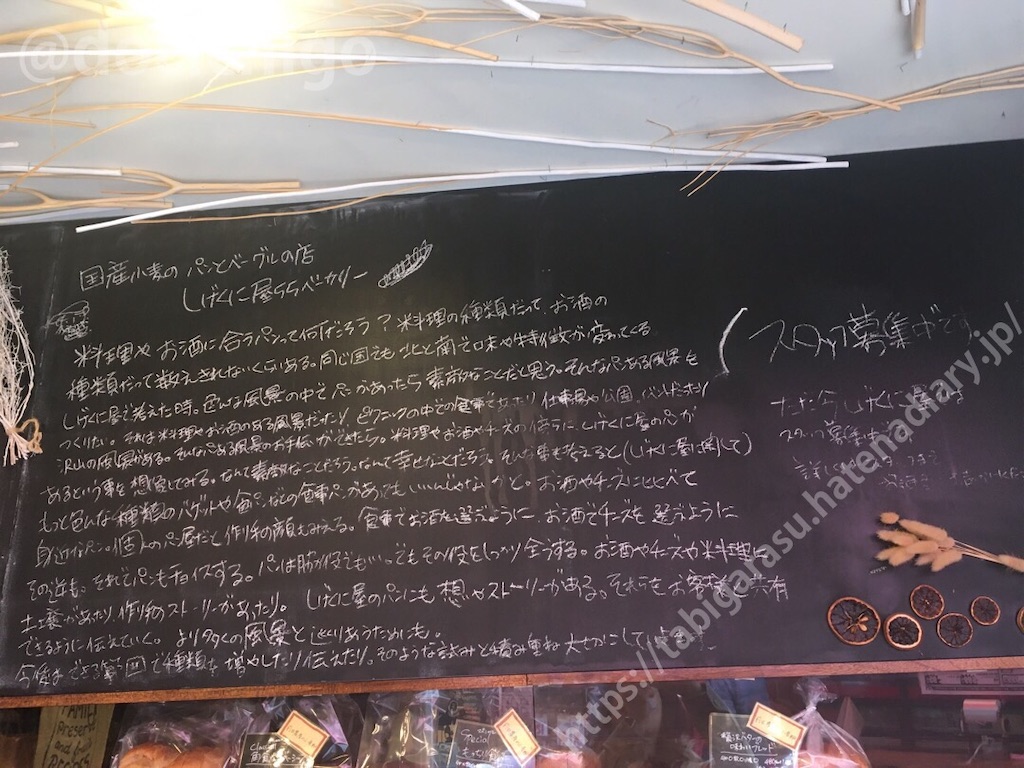 国産小麦の パンとベーグルの店
しげくに屋55ベーカリー
料理や お酒に合うパンって何だろう？料理の種類だって、お酒の
種類だって数えきれないくらいある。同じ国でも北と南で味や特徴が変わってくる
しげくに屋で考えた時、色んな風景の中でパンがあったら素敵なことだと思う。そんなパンある風景を
つくりたい。それは料理やお酒のある風景だったり、ピクニックの中での食事であったり仕事場や公園、イベントだったり
沢山の風景がある。そんなパンある風景のお手伝いができたら。料理やお酒やチーズのように、しげくに屋のパンが
あるという事を想像してみる。なんて素敵なことだろう。なんて幸せなことだろう。そんな事を考えると(しげくに屋と関して)
もっと色んな種類のバゲットや食パンなどの食事パンがあってもいいんじゃないかと。お酒やチーズにくらべて
身近なパン。個人のパン屋だと作り手の顔もみえる。食事でお酒を選ぶように、お酒でチーズを選ぶように
その逆も。それでパンもチョイスする。パンは脇役でもいい。でもその役をしっかり全うする。お酒やチーズや料理に
土壌があったり、作り手のストーリーがあったり。 しげくに屋のパンにも想いやストーリーがある。それらをお客様と共有
できるように伝えていく。 より多くの風景と巡りあうためにも。
今後はできる範囲で種類を増やしたり伝えたり。そのような試みと積み重ね大切にしていきます
スタッフ募集中です
ただ今しげくに屋では
スタッフ募集
FAMILY
Preserved
and fruit
Special
贅沢バターの
味わいブレッド
https://tabigarasu.hatenadiary.jp/